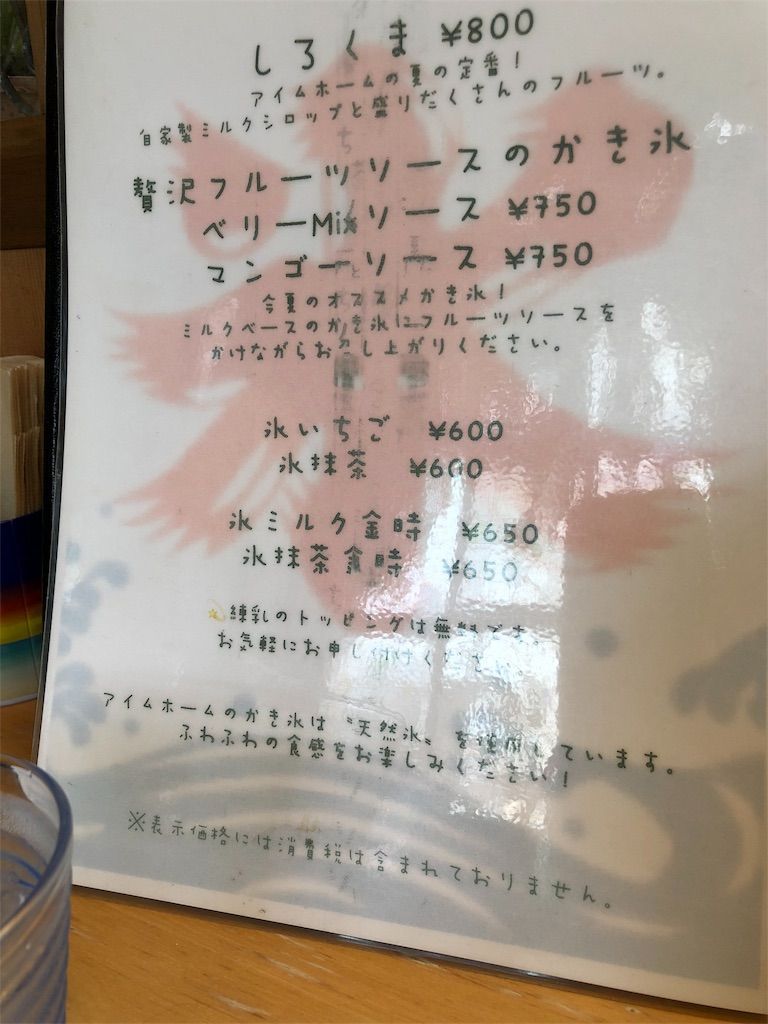 しろくま ¥800
アイムホームの夏の定番！
自家製ミルクシロップと盛りだくさんのフルーツ。
贅沢フルーツソースのかき氷
ベリーMixソース ¥750
マンゴーソース ¥750
今夏のオススメかき氷！
ミルクベースのかき氷にフルーツソースを
かけながらお召し上がりください。
氷いちご ¥600
氷抹茶 ¥600
氷ミルク金時 ¥650
氷抹茶金時 ¥650
練乳のトッピングは無料です。
お気軽にお申し付けください。
アイムホームのかき氷は〝天然氷〟を使用しています。
ふわふわの食感をお楽しみください！
※表示価格には消費税は含まれておりません。